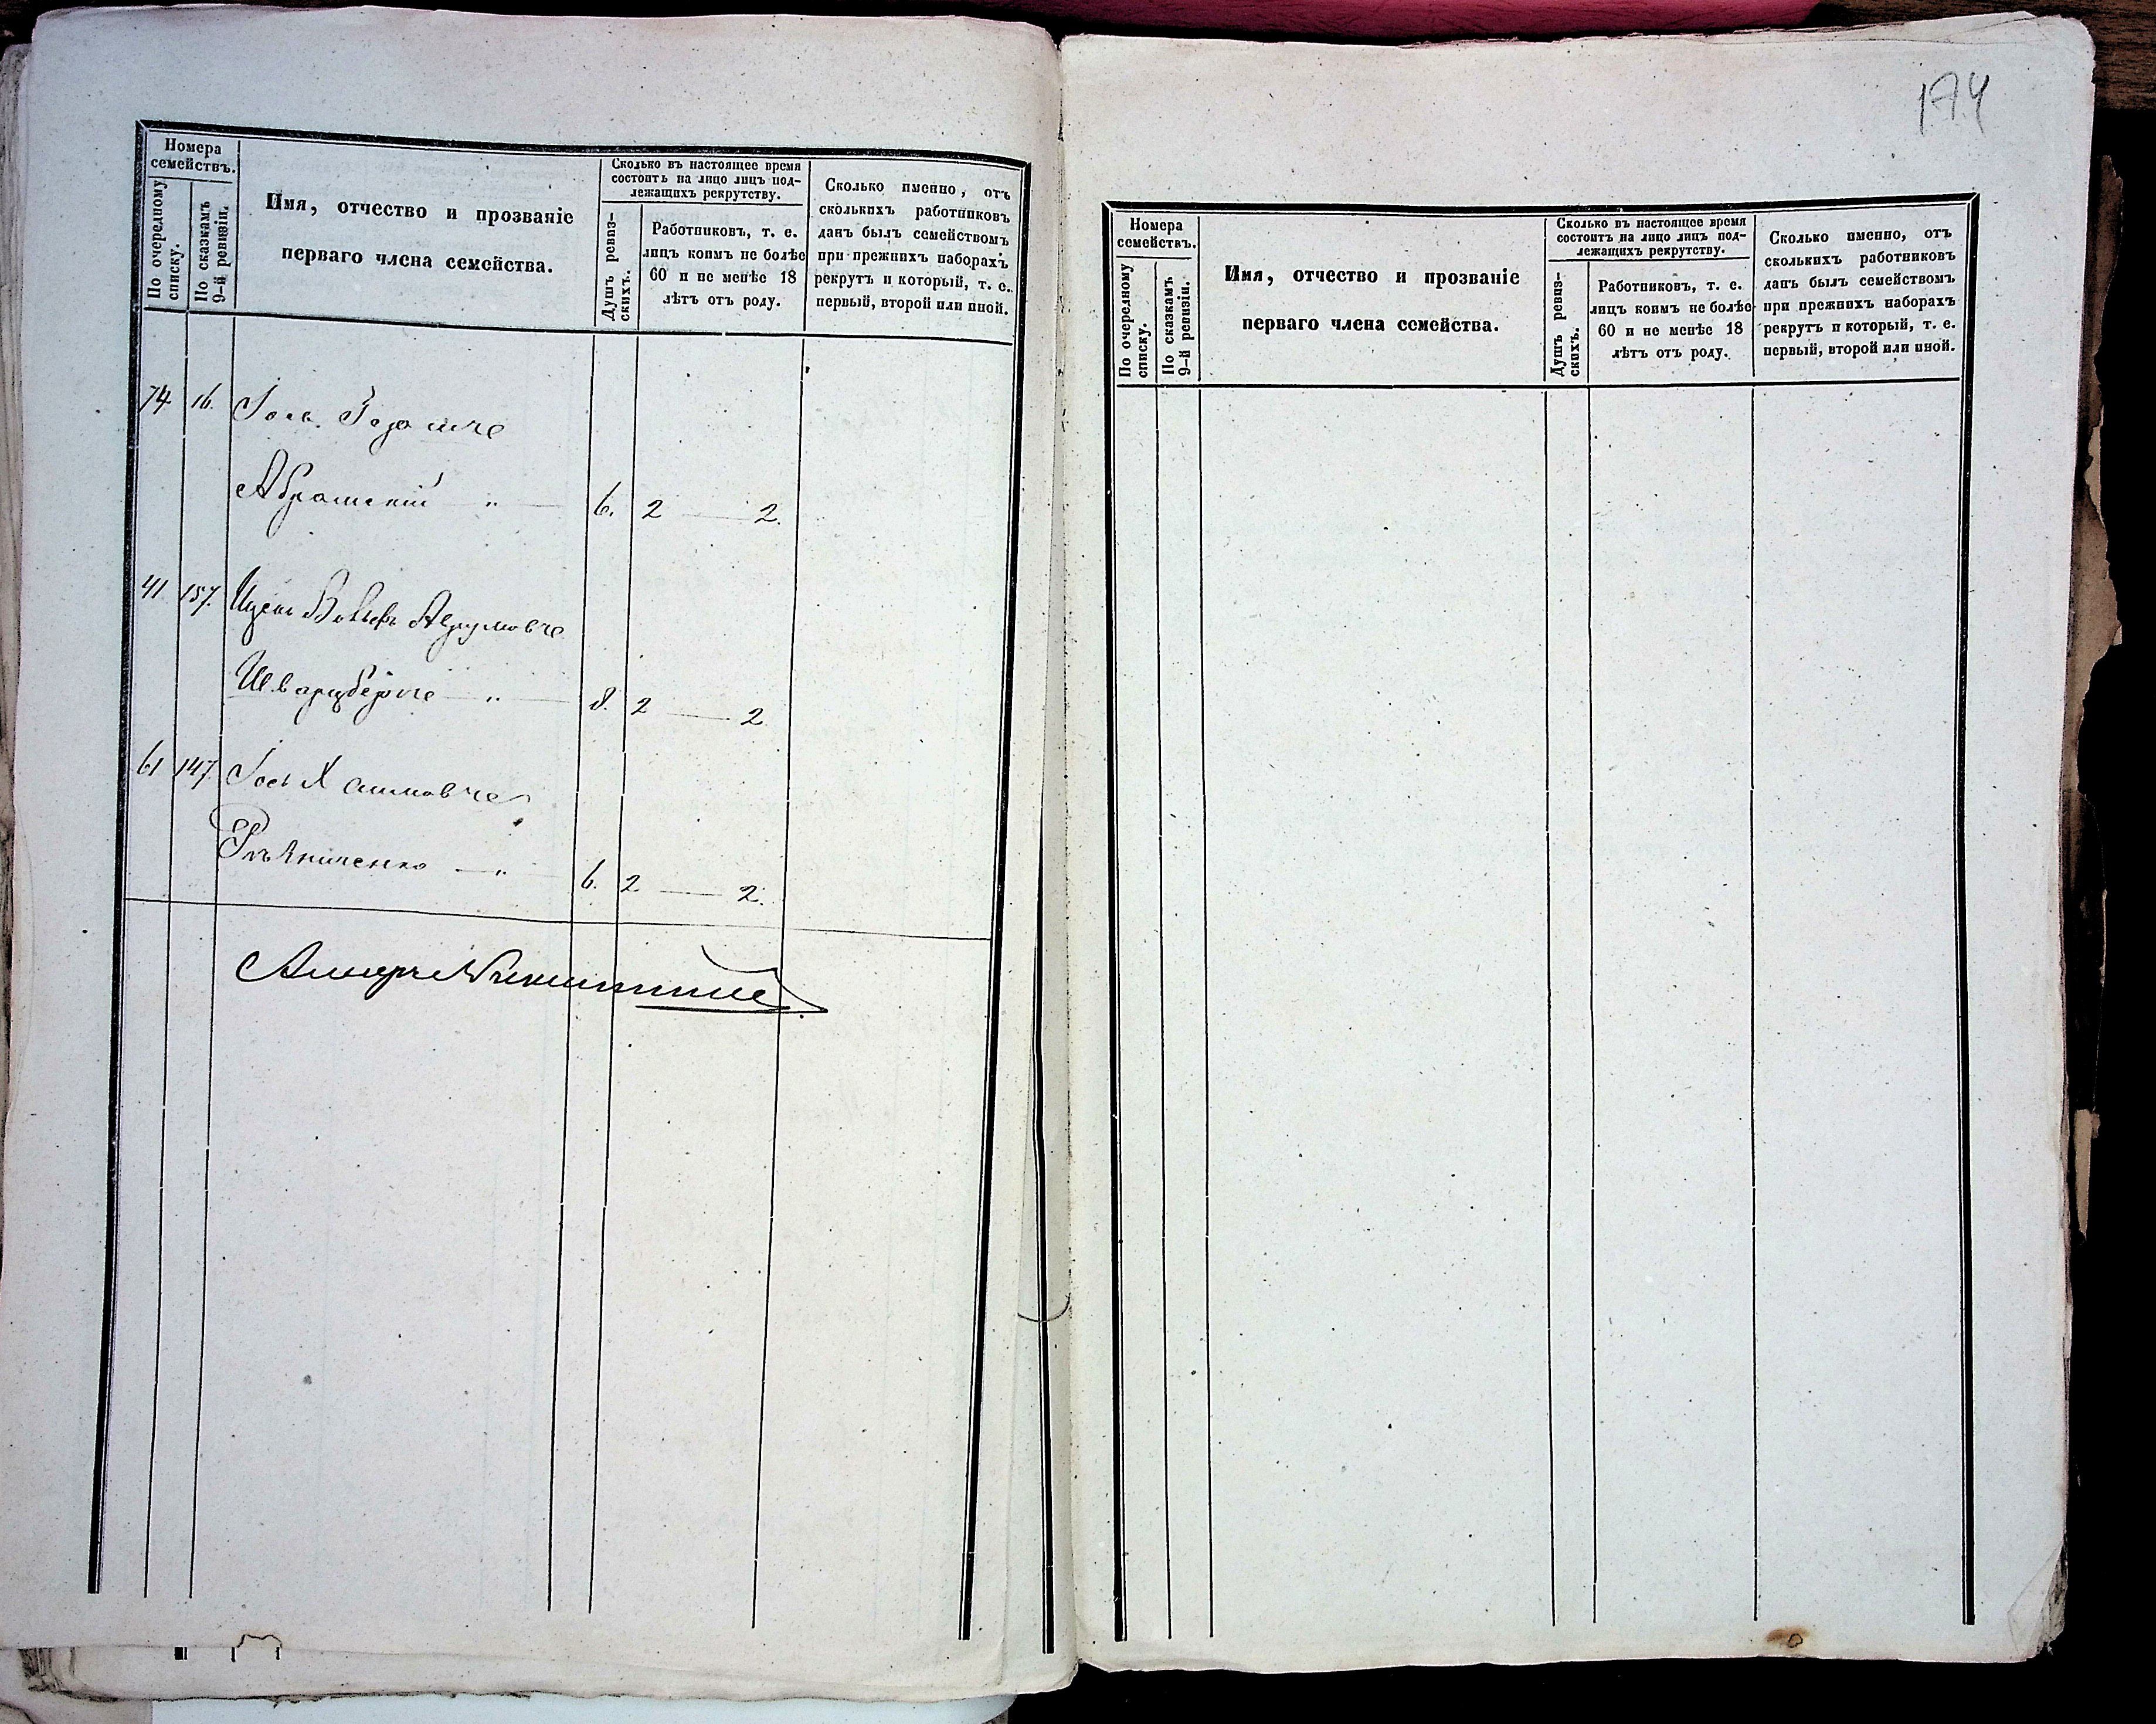 174
Номера
семействъ.
По очередному
списку.
По сказкамъ
9-й ревизіи.
Имя, отчество и прозваніе
перваго члена семейства.
Сколько въ настоящее время
состоитъ на лицо лицъ под-
лежащихъ рекрутству.
Душъ ревиз-
скихъ.
Работниковъ, т. е.
лицъ коимъ не болѣе
60 и не менѣе 18
лѣтъ отъ роду.
Сколько именно, отъ
сколькихъ работниковъ
данъ былъ семействомъ
при прежнихъ наборахъ
рекрутъ и который, т. е.
первый, второй или иной.
74 16.
Абрамскій " — 6. 2 — 2.
41 157. Ицекъ Волько Аврумовъ
Шварцбергъ — " — 8. 2 — 2
61 147. Іось Хаимовъ
— " — 6. 2 — 2.
Номера
семействъ.
По очередному
списку.
По сказкамъ
9-й ревизіи.
Имя, отчество и прозваніе
перваго члена семейства.
Сколько въ настоящее время
состоитъ на лицо лицъ под-
лежащихъ рекрутству.
Душъ ревиз-
скихъ.
Работниковъ, т. е.
лицъ коимъ не болѣе
60 и не менѣе 18
лѣтъ отъ роду.
Сколько именно, отъ
сколькихъ работниковъ
данъ былъ семействомъ
при прежнихъ наборахъ
рекрутъ и который, т. е.
первый, второй или иной.